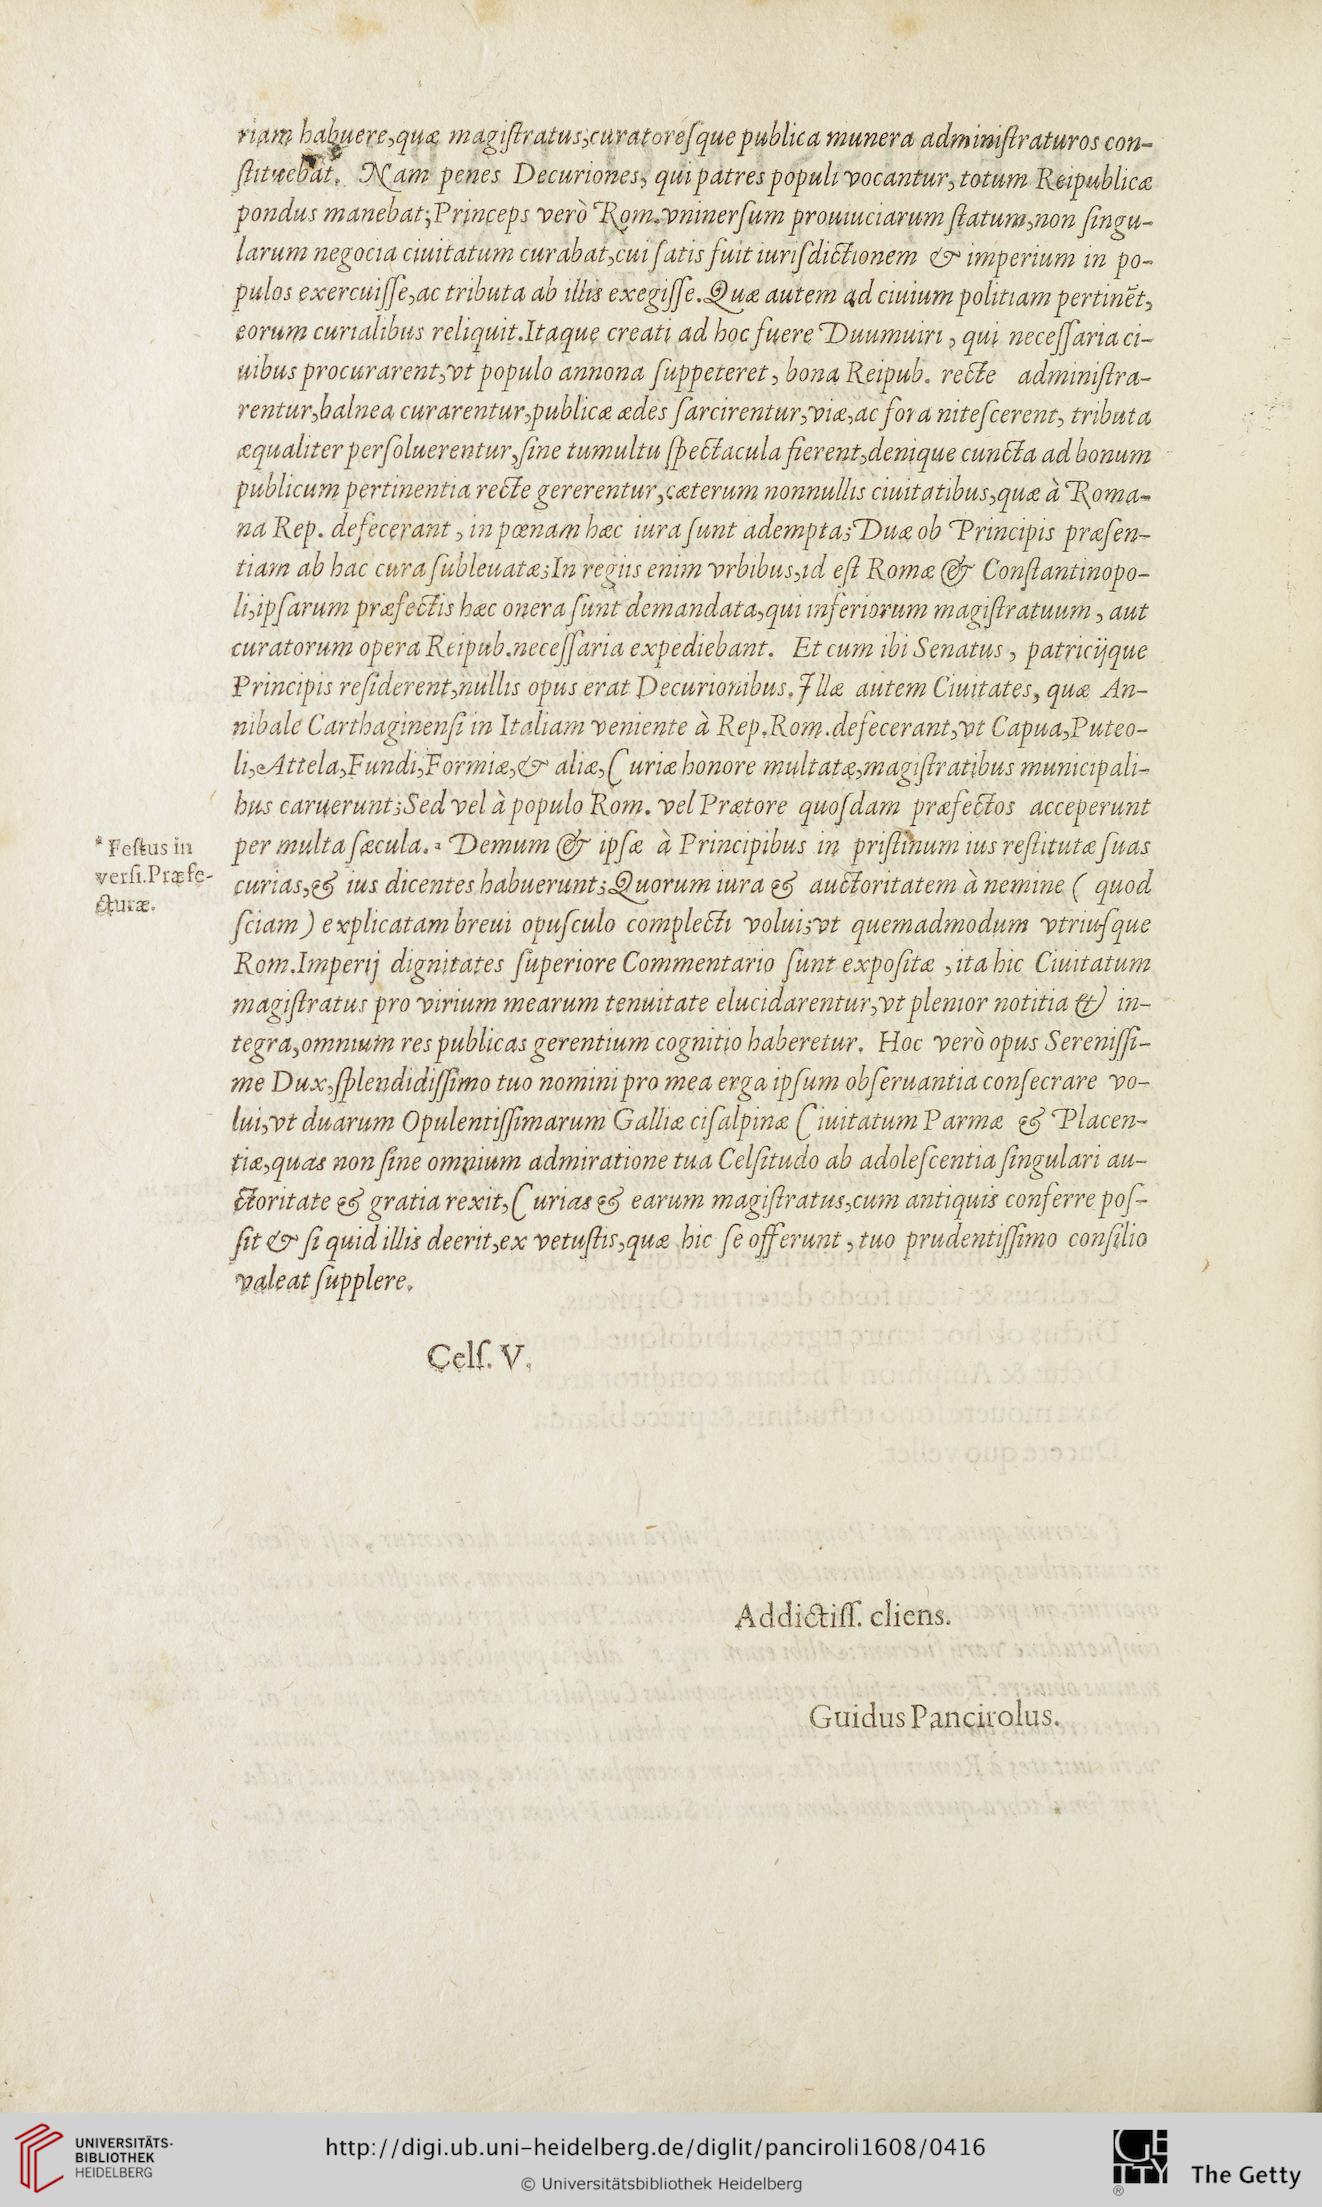 riam habuere,quæ magiſtratus;curatoreſque publica munera adminiſtraturos con-
ſtituebat. Nam penes Decuriones, qui patres populi vocantur, totum Reipublicæ
pondus manebat; Princeps verò Rom. vninerſum prouiuciarum ſtatum, non ſingu-
larum negocia ciuitatum curabat, cui ſatis fuit iuriſdictionem & imperium in po-
pulos exercuiſſe, ac tributa ab illis exegiſſe. Quæ autem ad ciuium politiam pertinēt,
eorum curialibus reliquit. Itaque creati ad hoc fuere Duumuiri, qui neceſſaria ci-
uibus procurarent, vt populo annona ſuppeteret, bona Reipub. recte adminiſtra-
rentur, balnea curarentur, publicæ ædes ſarcirentur, viæ, ac fora niteſcerent, tributa
æqualiter perſoluerentur, ſine tumultu ſpectacula fierent, denique cuncta ad bonum
publicum pertinentia recte gererentur, cæterum nonnullis ciuitatibus, quæ à Roma-
na Rep. defecerant, in pœnam hæc iura ſunt adempta; Duæ ob Principis præſen-
tiam ab hac cura ſubleuatæ; In regiis enim vrbibus, id eſt Romæ & Conſtantinopo-
li, ipſarum præfectis hæc onera ſunt demandata, qui inferiorum magiſtratuum, aut
curatorum opera Reipub. neceſſaria expediebant. Et cum ibi Senatus, patricijque
Principis reſiderent, nullis opus erat Decurionibus. Illæ autem Ciuitates, quæ An-
nibale Carthaginenſi in Italiam veniente à Rep. Rom. defecerant, vt Capua, Puteo-
li, Attela, Fundi, Formiæ, & aliæ, Curiæ honore multatæ, magiſtratibus municipali-
bus caruerunt; Sed vel à populo Rom. vel Prætore quoſdam præfectos acceperunt
per multa ſæcula. ª Demum & ipſæ à Principibus in priſtinum ius reſtitutæ ſuas
ª Feſtus in
verſi. Præfe-
cturæ.
curias, & ius dicentes habuerunt; Quorum iura & auctoritatem à nemine ( quod
ſciam ) explicatam breui opuſculo complecti volui; vt quemadmodum vtriuſque
Rom. Imperij dignitates ſuperiore Commentario ſunt expoſitæ, ita hic Ciuitatum
magiſtratus pro virium mearum tenuitate elucidarentur, vt plenior notitia & in-
tegra, omnium res publicas gerentium cognitio haberetur. Hoc verò opus Sereniſſi-
me Dux, ſplendidiſſimo tuo nomini pro mea erga ipſum obſeruantia conſecrare vo-
lui, vt duarum Opulentiſſimarum Galliæ ciſalpinæ Ciuitatum Parmæ & Placen-
tiæ, quas non ſine omnium admiratione tua Celſitudo ab adoleſcentia ſingulari au-
ctoritate & gratia rexit, Curias & earum magiſtratus, cum antiquis conferre poſ-
ſit & ſi quid illis deerit, ex vetuſtis, quæ hic ſe offerunt, tuo prudentiſſimo conſilio
valeat ſupplere.
Celſ. V.
Addictiſſ. cliens.
Guidus Pancirolus.
UNIVERSITÄTS-
BIBLIOTHEK
HEIDELBERG
http://digi.ub.uni-heidelberg.de/diglit/panciroli1608/0416
© Universitätsbibliothek Heidelberg
GETTY
®
The Getty